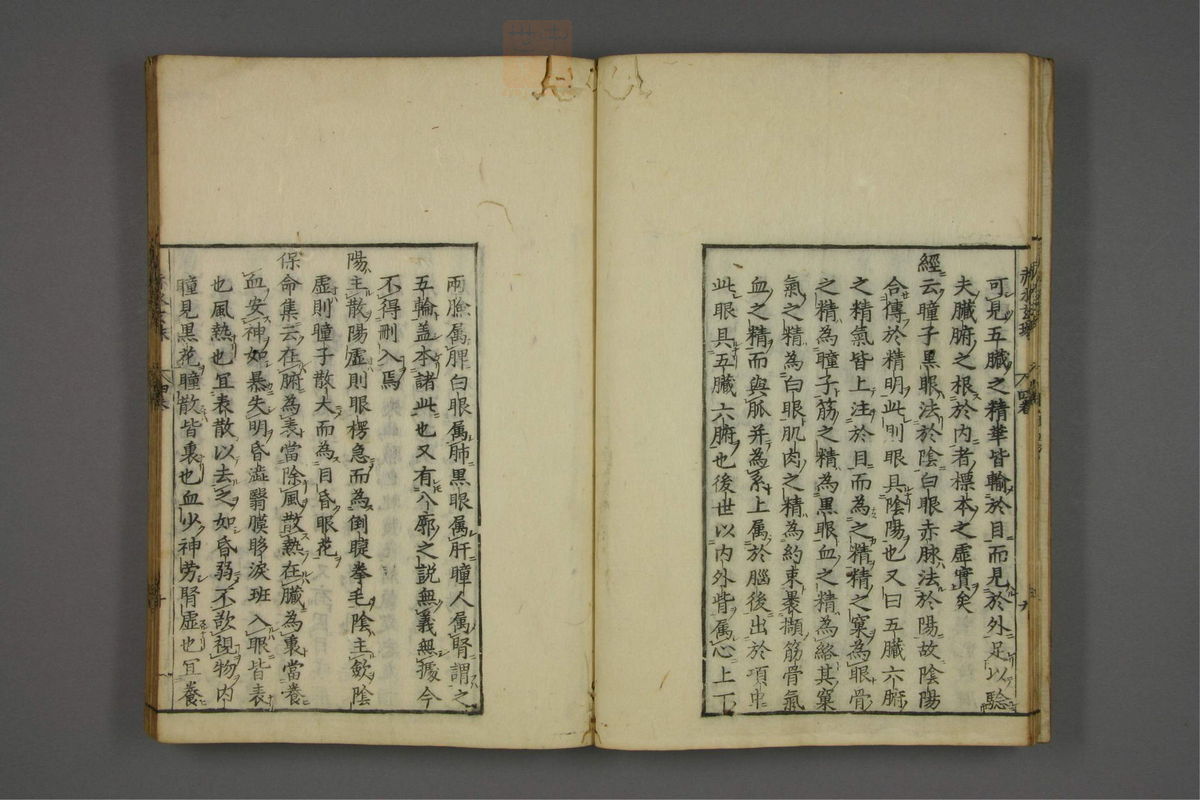 可見五臟之精華皆輸於目而見於外足以驗
夫臟腑之根於内者標本之虚實矣
經云瞳子黒眼法於陰白眼赤脉法於陽故陰陽
合傳於精明此則眼具陰陽也又曰五臟六腑
之精氣皆上注於目而為之精精之窠為眼骨
之精為瞳子筋之精為黒眼血之精為絡其窠
氣之精為白眼肌肉之精為約束裹擷筋骨氣
血之精而與脈并為系上属於腦後出於項中
此眼具五臟六腑也後世以内外眥属心上下
兩瞼属脾白眼属肺黒眼属肝瞳人属腎謂之
五輪盖本諸此也又有八廓之説無義無據今
不得刪入焉
陽主散陽虚則眼楞急而為倒睫拳毛陰主歛陰
虚則瞳子散大而為目昏眼花
保命集云在腑為表當除風散熱在臟為裏當養
血安神如暴失明昏澁翳膜眵淚斑入眼皆表
也風熱也宜表散以去之如昏弱不欲視物内
瞳見黒花瞳散皆裏也血少神劳腎虚也宜養